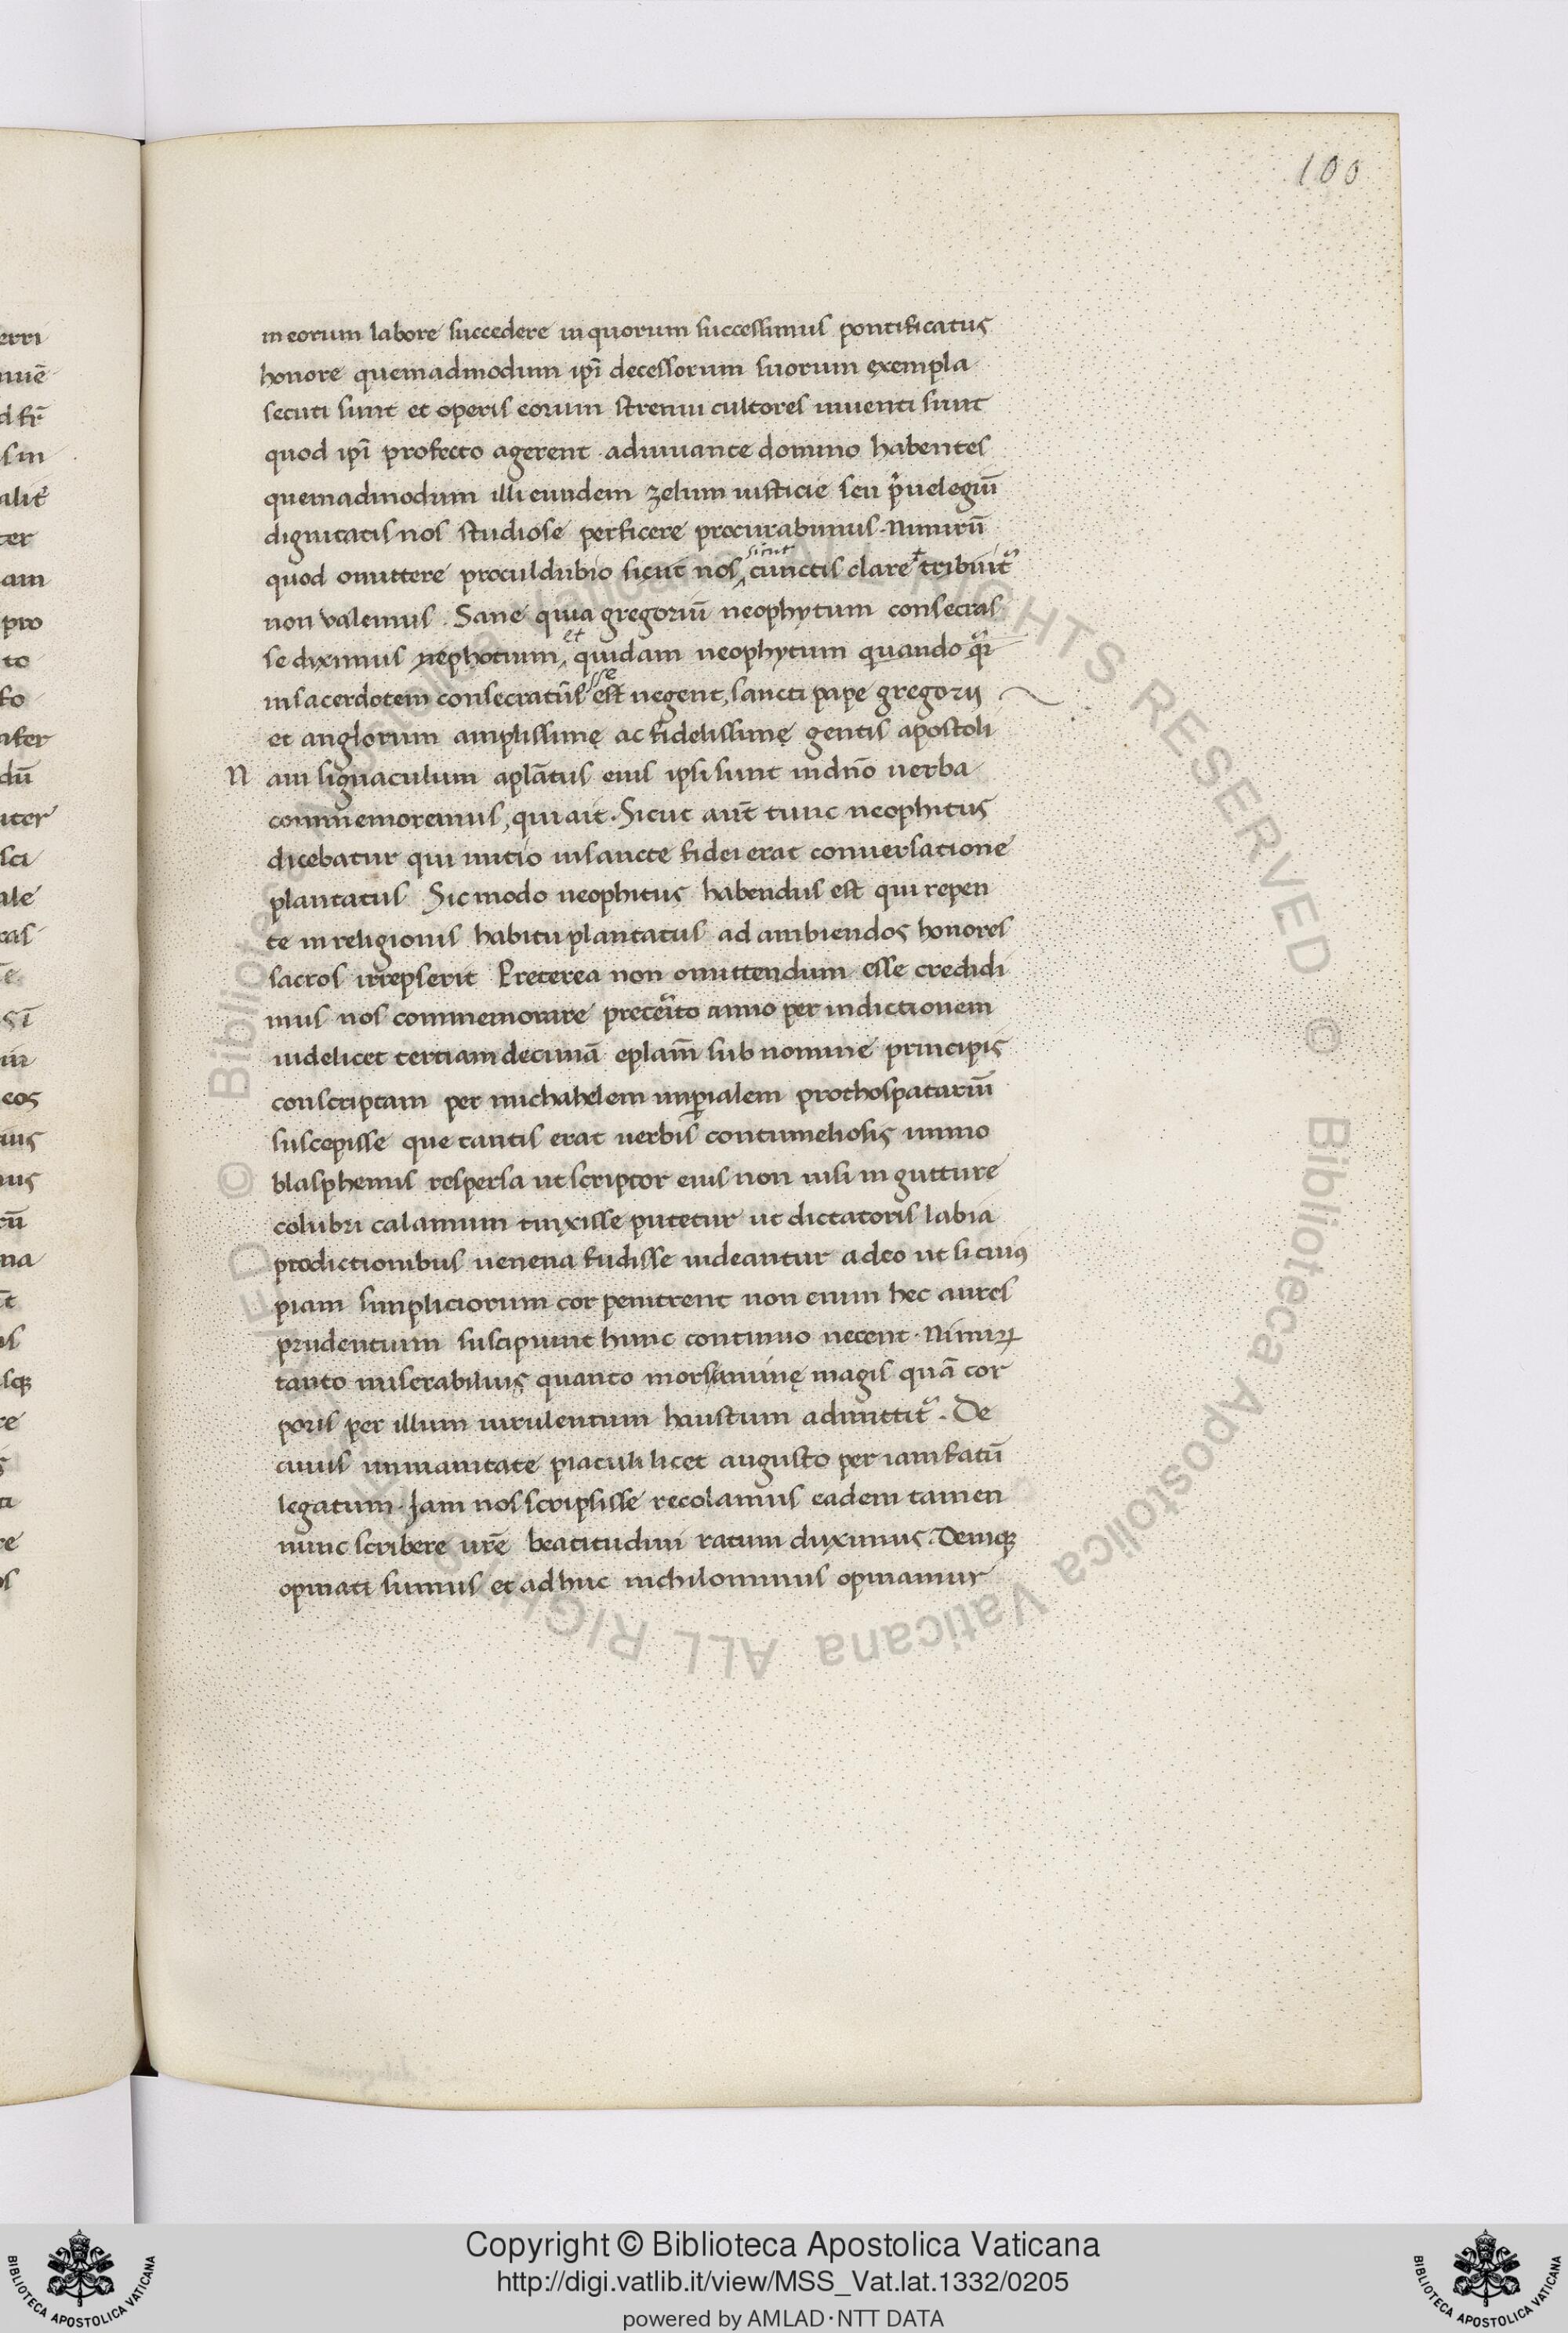 100
in eorum labore succedere in quorum successimus pontificatus
honore quemadmodum ip̄i decessorum suorum exempla
secuti sunt et operis eorum strenui cultores inuenti sunt
quod ip̄i profecto agerent adiuuante domino habentes
quemadmodum illi eundem zelum iusticie seu p̄uelegiū
dignitatis nos studiose perficere procurabimus. Nimirū
sicut
quod omittere proculdubio sicut nos cunctis clare tribuit᷑
non valemus. Sane quia gregoriū neophytum consecras
et
se diximus nephotium, quidam neophytum quando
sse
in sacerdotem consecratūs est negent, sancti pape gregorij
et anglorum amplissimę ac fidelissimę gentis apostoli
N am signaculum aplātus eius ipsi sunt in dn̄o uerba
commemoremus, qui ait. Sicut aūt tunc neophitus
dicebatur qui initio in sancte fidei erat conuersatione
plantatus Sic modo neophitus habendus est qui repen
te in religionis habitu plantatus ad ambiendos honores
sacros irrepserit Preterea non omittendum esse credidi
mus nos commemorare preteīto anno per indictionem
uidelicet tertiam decimā eplam̄ sub nomine principis
conscriptam per michahelem imp̄ialem prothospatariū
suscepisse que tantis erat uerbis contumeliosis immo
blasphemis respersa ut scriptor eius non nisi in gutture
colubri calamum tinxisse putetur ut dictatoris labia
pro dictionibus uenena fudisse uideantur adeo ut si cuiuꝯ
piam simpliciorum cor penitrent non enim hec aures
prudentum suscipiunt hunc continuo necent. Nimirꝝ
tanto miserabilius quanto mors animę magis quā cor
poris per illum uirulentum haustum admittit᷑. De
cuius inmanitate piaculi licet augusto per iam fatū
legatum. Jam nos scripsisse recolamus eadem tamen
nunc scribere urē beatitudini ratum duximus. Deniqꝫ
opinati sumus et adhuc nichilominus opinamur
Copyright © Biblioteca Apostolica Vaticana
http://digi.vatlib.it/view/MSS_Vat.lat.1332/0205
powered by AMLAD·NTT DATA